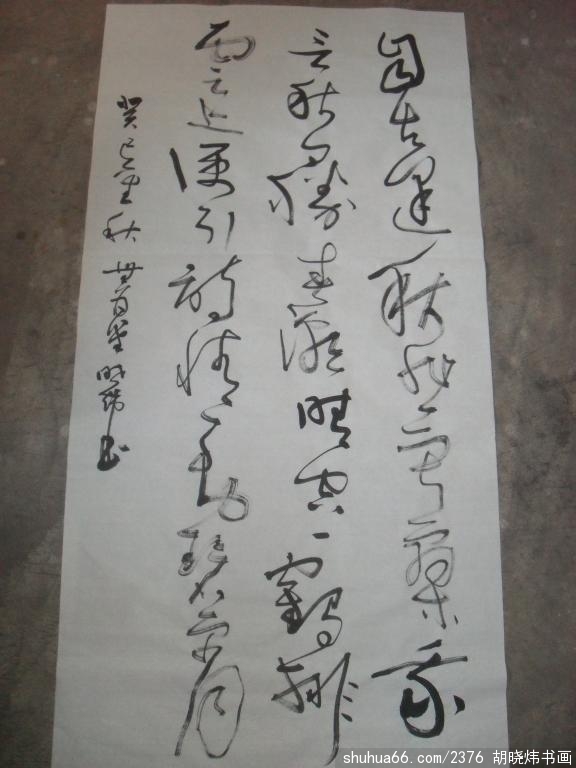 自古逢秋悲寂寥我
言秋日勝春潮晴空一鶴排
雲上便引詩情到碧霄
癸巳秋 堂 晓炜书
shuhua66.com/2376 胡晓炜书画